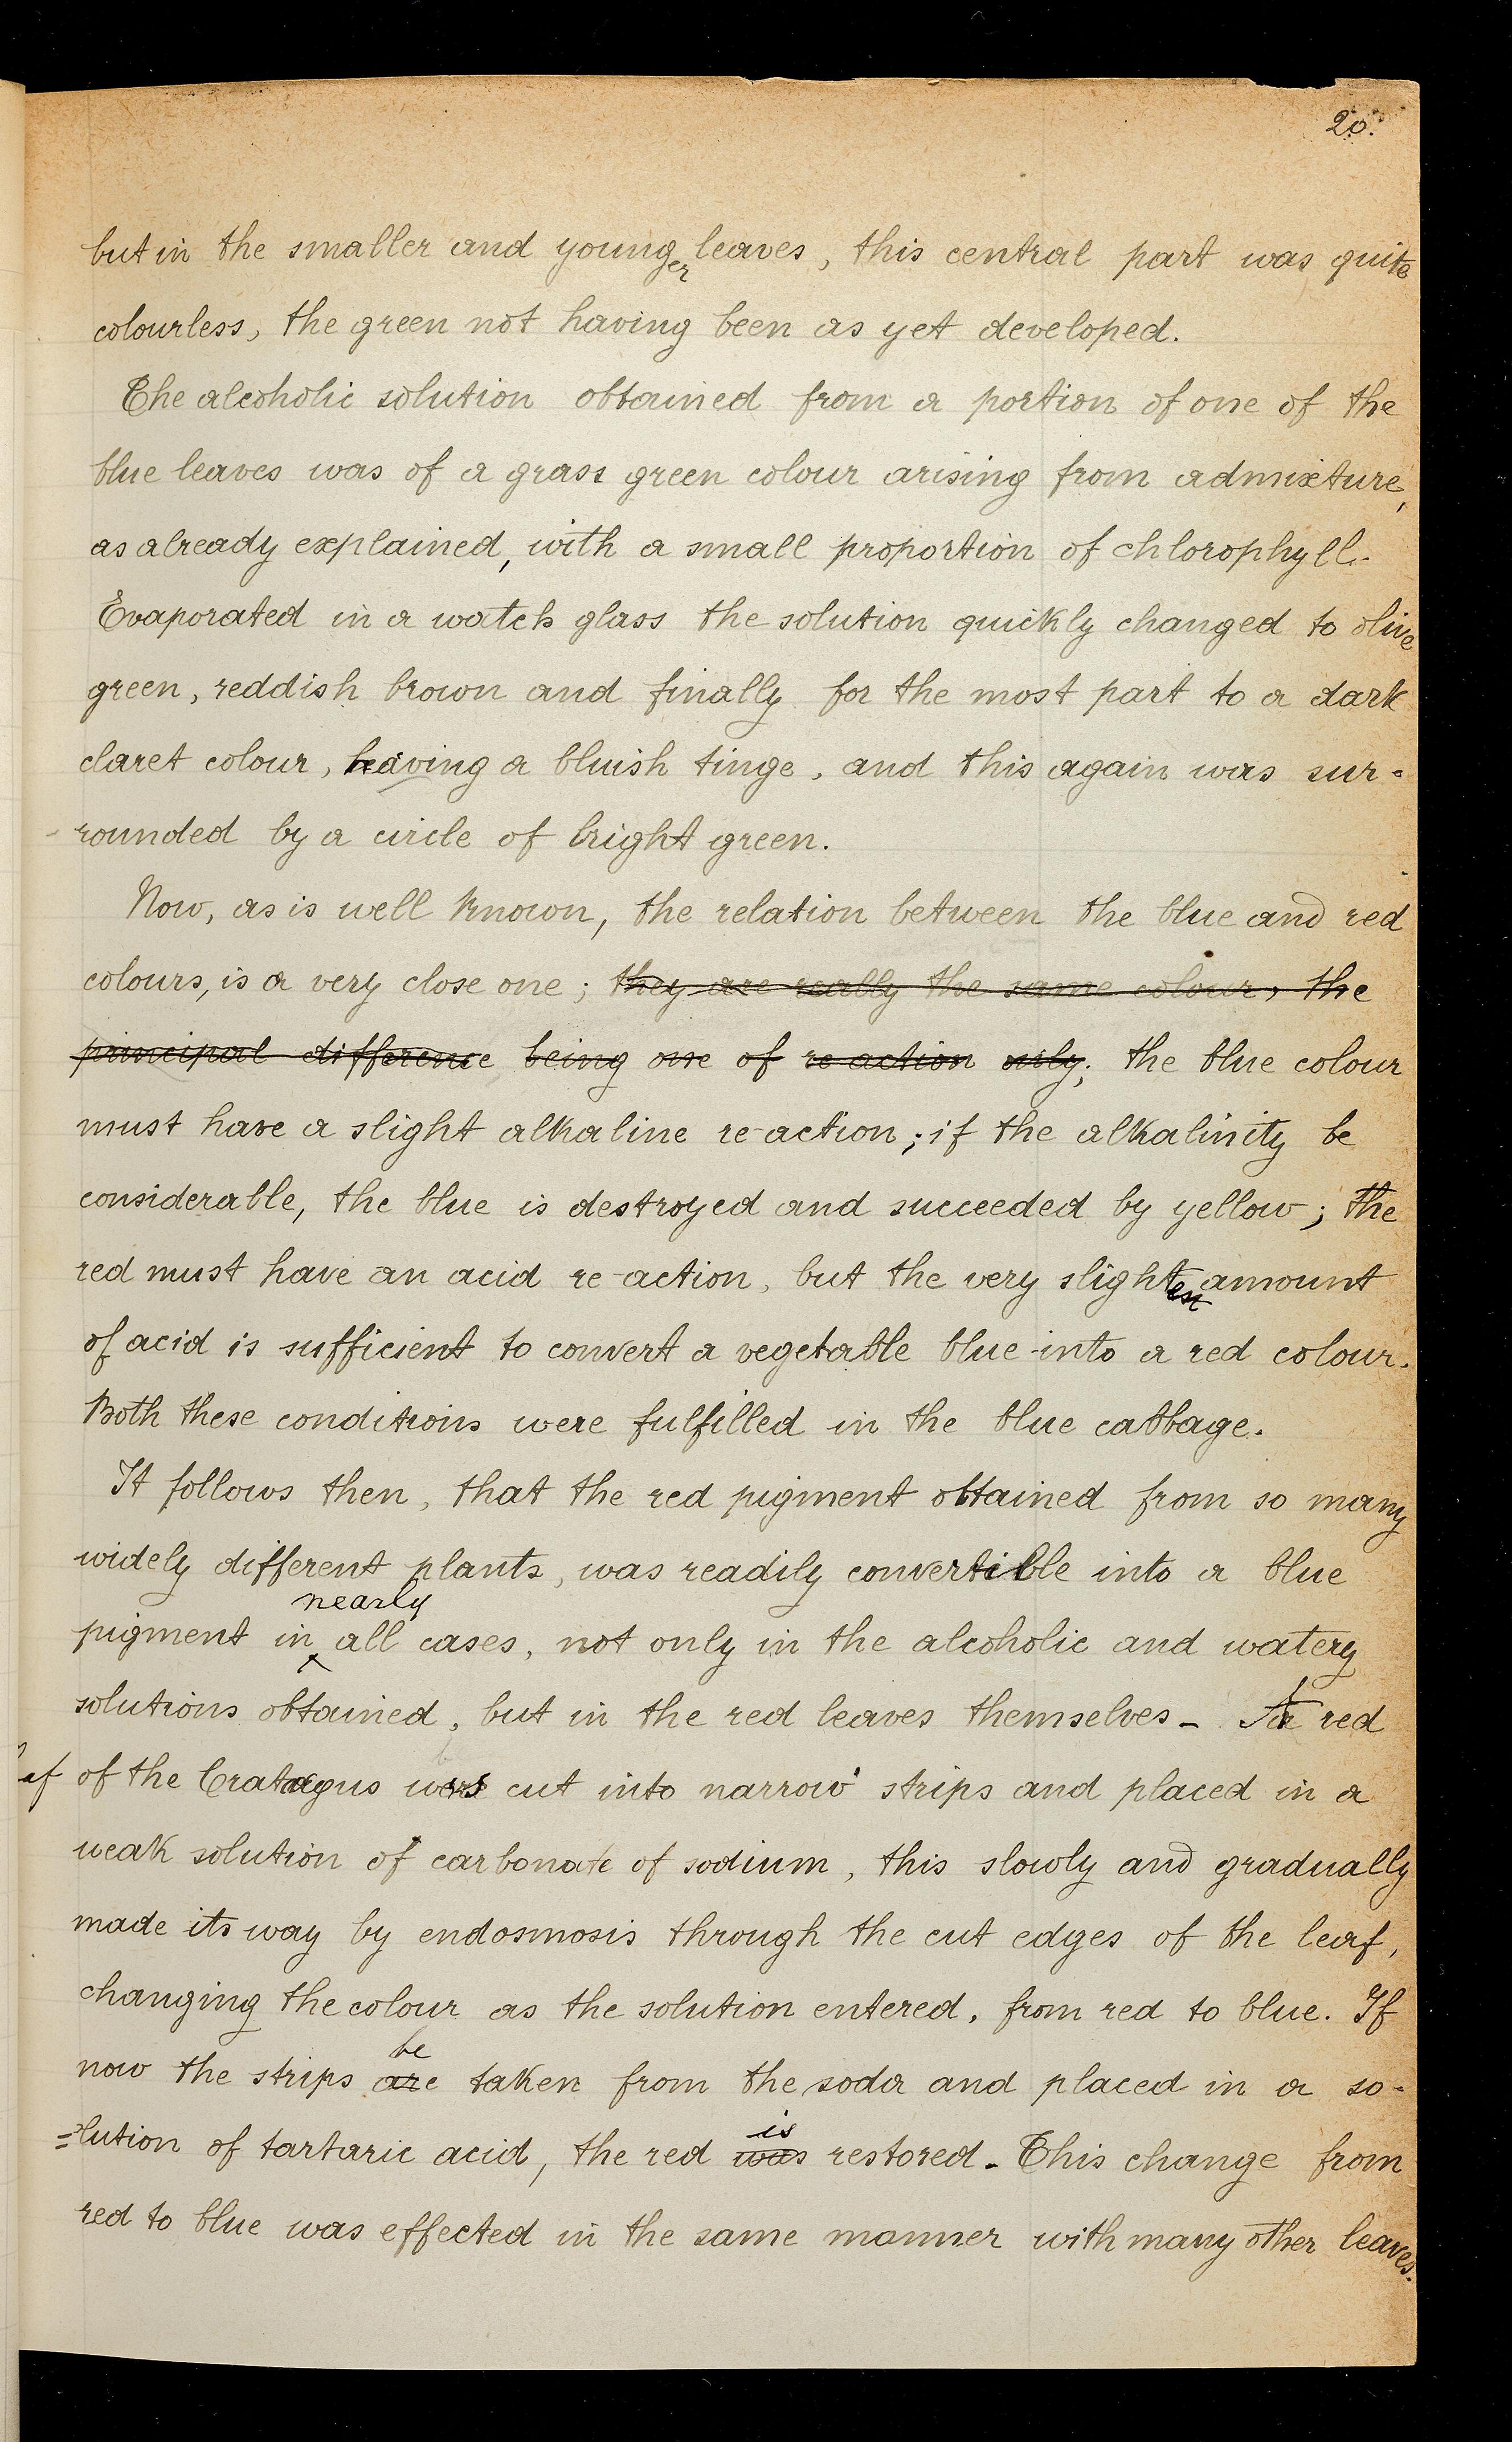 20.
but in the smaller and younger leaves, this central part was quite
colourless, the green not having been as yet developed.
The alcoholic solution obtained from a portion of one of the
blue leaves was of a grass green colour arising from admixture,
as already explained, with a small proportion of chlorophyll.
Evaporated in a watch glass the solution quickly changed to olive
green, reddish brown and finally for the most part to a dark
claret colour, having a bluish tinge, and this again was sur-
rounded by a circle of bright green.
Now, as is well known, the relation between the blue and red
colours, is a very close one; they are really the same colour, the
principal difference being one of re action only; the blue colour
must have a slight alkaline re-action; if the alkalinity be
considerable, the blue is destroyed and succeeded by yellow; the
red must have an acid re-action, but the very slightest amount
of acid is sufficient to convert a vegetable blue into a red colour.
Both these conditions were fulfilled in the blue cabbage.
It follows then, that the red pigment obtained from so many
widely different plants, was readily convertible into a blue
nearly
pigment in all cases, not only in the alcoholic and watery
solutions obtained, but in the red leaves themselves - red
of the Crataegus was cut into narrow strips and placed in a
weak solution of carbonate of sodium, this slowly and gradually
made its way by endosmosis through the cut edges of the leaf,
changing the colour as the solution entered, from red to blue. If
be
now the strips are taken from the soda and placed in a so-
is
=lution of tartaric acid, the red was restored - This change from
red to blue was effected in the same manner with many other leaves.